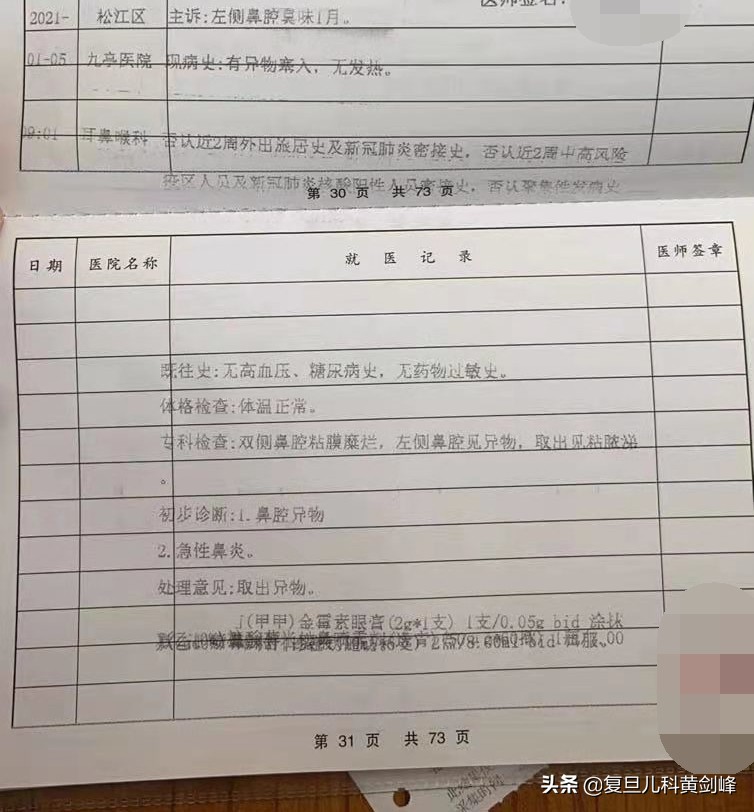 医师签名:
2021- 松江区 主诉:左侧鼻腔臭味1月。
01-05 九亭医院 现病史:有异物塞入，无发热。
09:01 耳鼻喉科 否认近2周外出旅居史及新冠肺炎密接史，否认近2周中高风险
疫区人员及新冠肺炎核酸阳性人员密接史，否认聚集性发病史
第 30 页 共 73 页
日期 医院名称 就医记录 医师签章
既往史:无高血压、糖尿病史，无药物过敏史。
体格检查:体温正常。
专科检查:双侧鼻腔粘膜糜烂，左侧鼻腔见异物，取出见粘脓涕
。
初步诊断:1.鼻腔异物
2.急性鼻炎。
处理意见:取出异物。
(甲甲)金霉素眼膏(2g*1支) 1支/0.05g bid 涂抹
第 31 页 共 73 页
头条 @复旦儿科黄剑峰